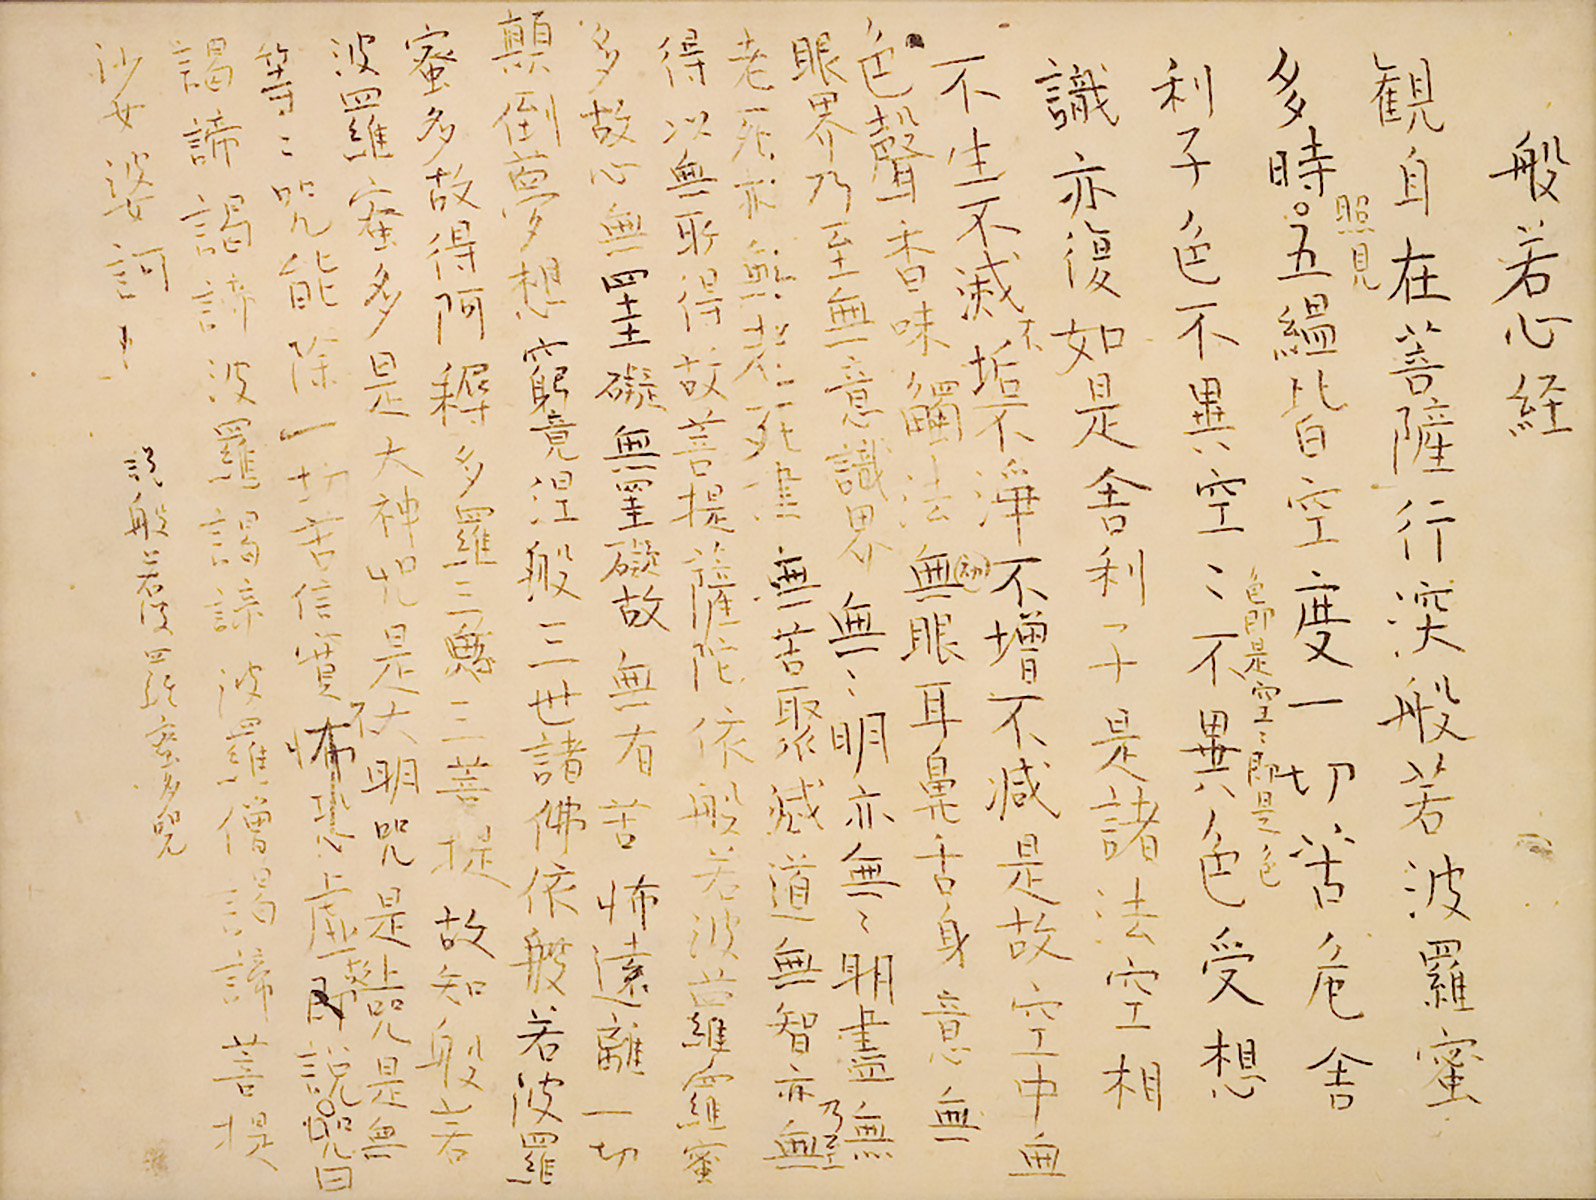 般若心経
観自在菩薩行深般若波羅蜜
多時照見五緼皆空度一切苦危舎
利子色不異空〻不異色色即是空〻即是色受想
識亦復如是舎利子是諸法空相
不生不滅不垢不淨不增不減是故空中無
色聲香味觸法無眼耳鼻舌身意無
眼界乃至無意識界無〻明亦無〻明盡乃至無
老死亦無老死盡無苦聚滅道無智亦無
得以無所得故菩提薩陀依般若波羅蜜
多故心無罣礙無罣礙故無有苦怖遠離一切
顛倒夢想窮竟涅般三世諸佛依般若波羅
蜜多故得阿耨多羅三藐三菩提故知般若
波羅蜜多是大神咒是大明咒是無上咒是無
等〻咒能除一切苦信實不虚故説咒即説咒曰
謁諦謁諦波羅謁諦波羅僧謁諦菩提
沙女婆訶
説般若波羅蜜多咒